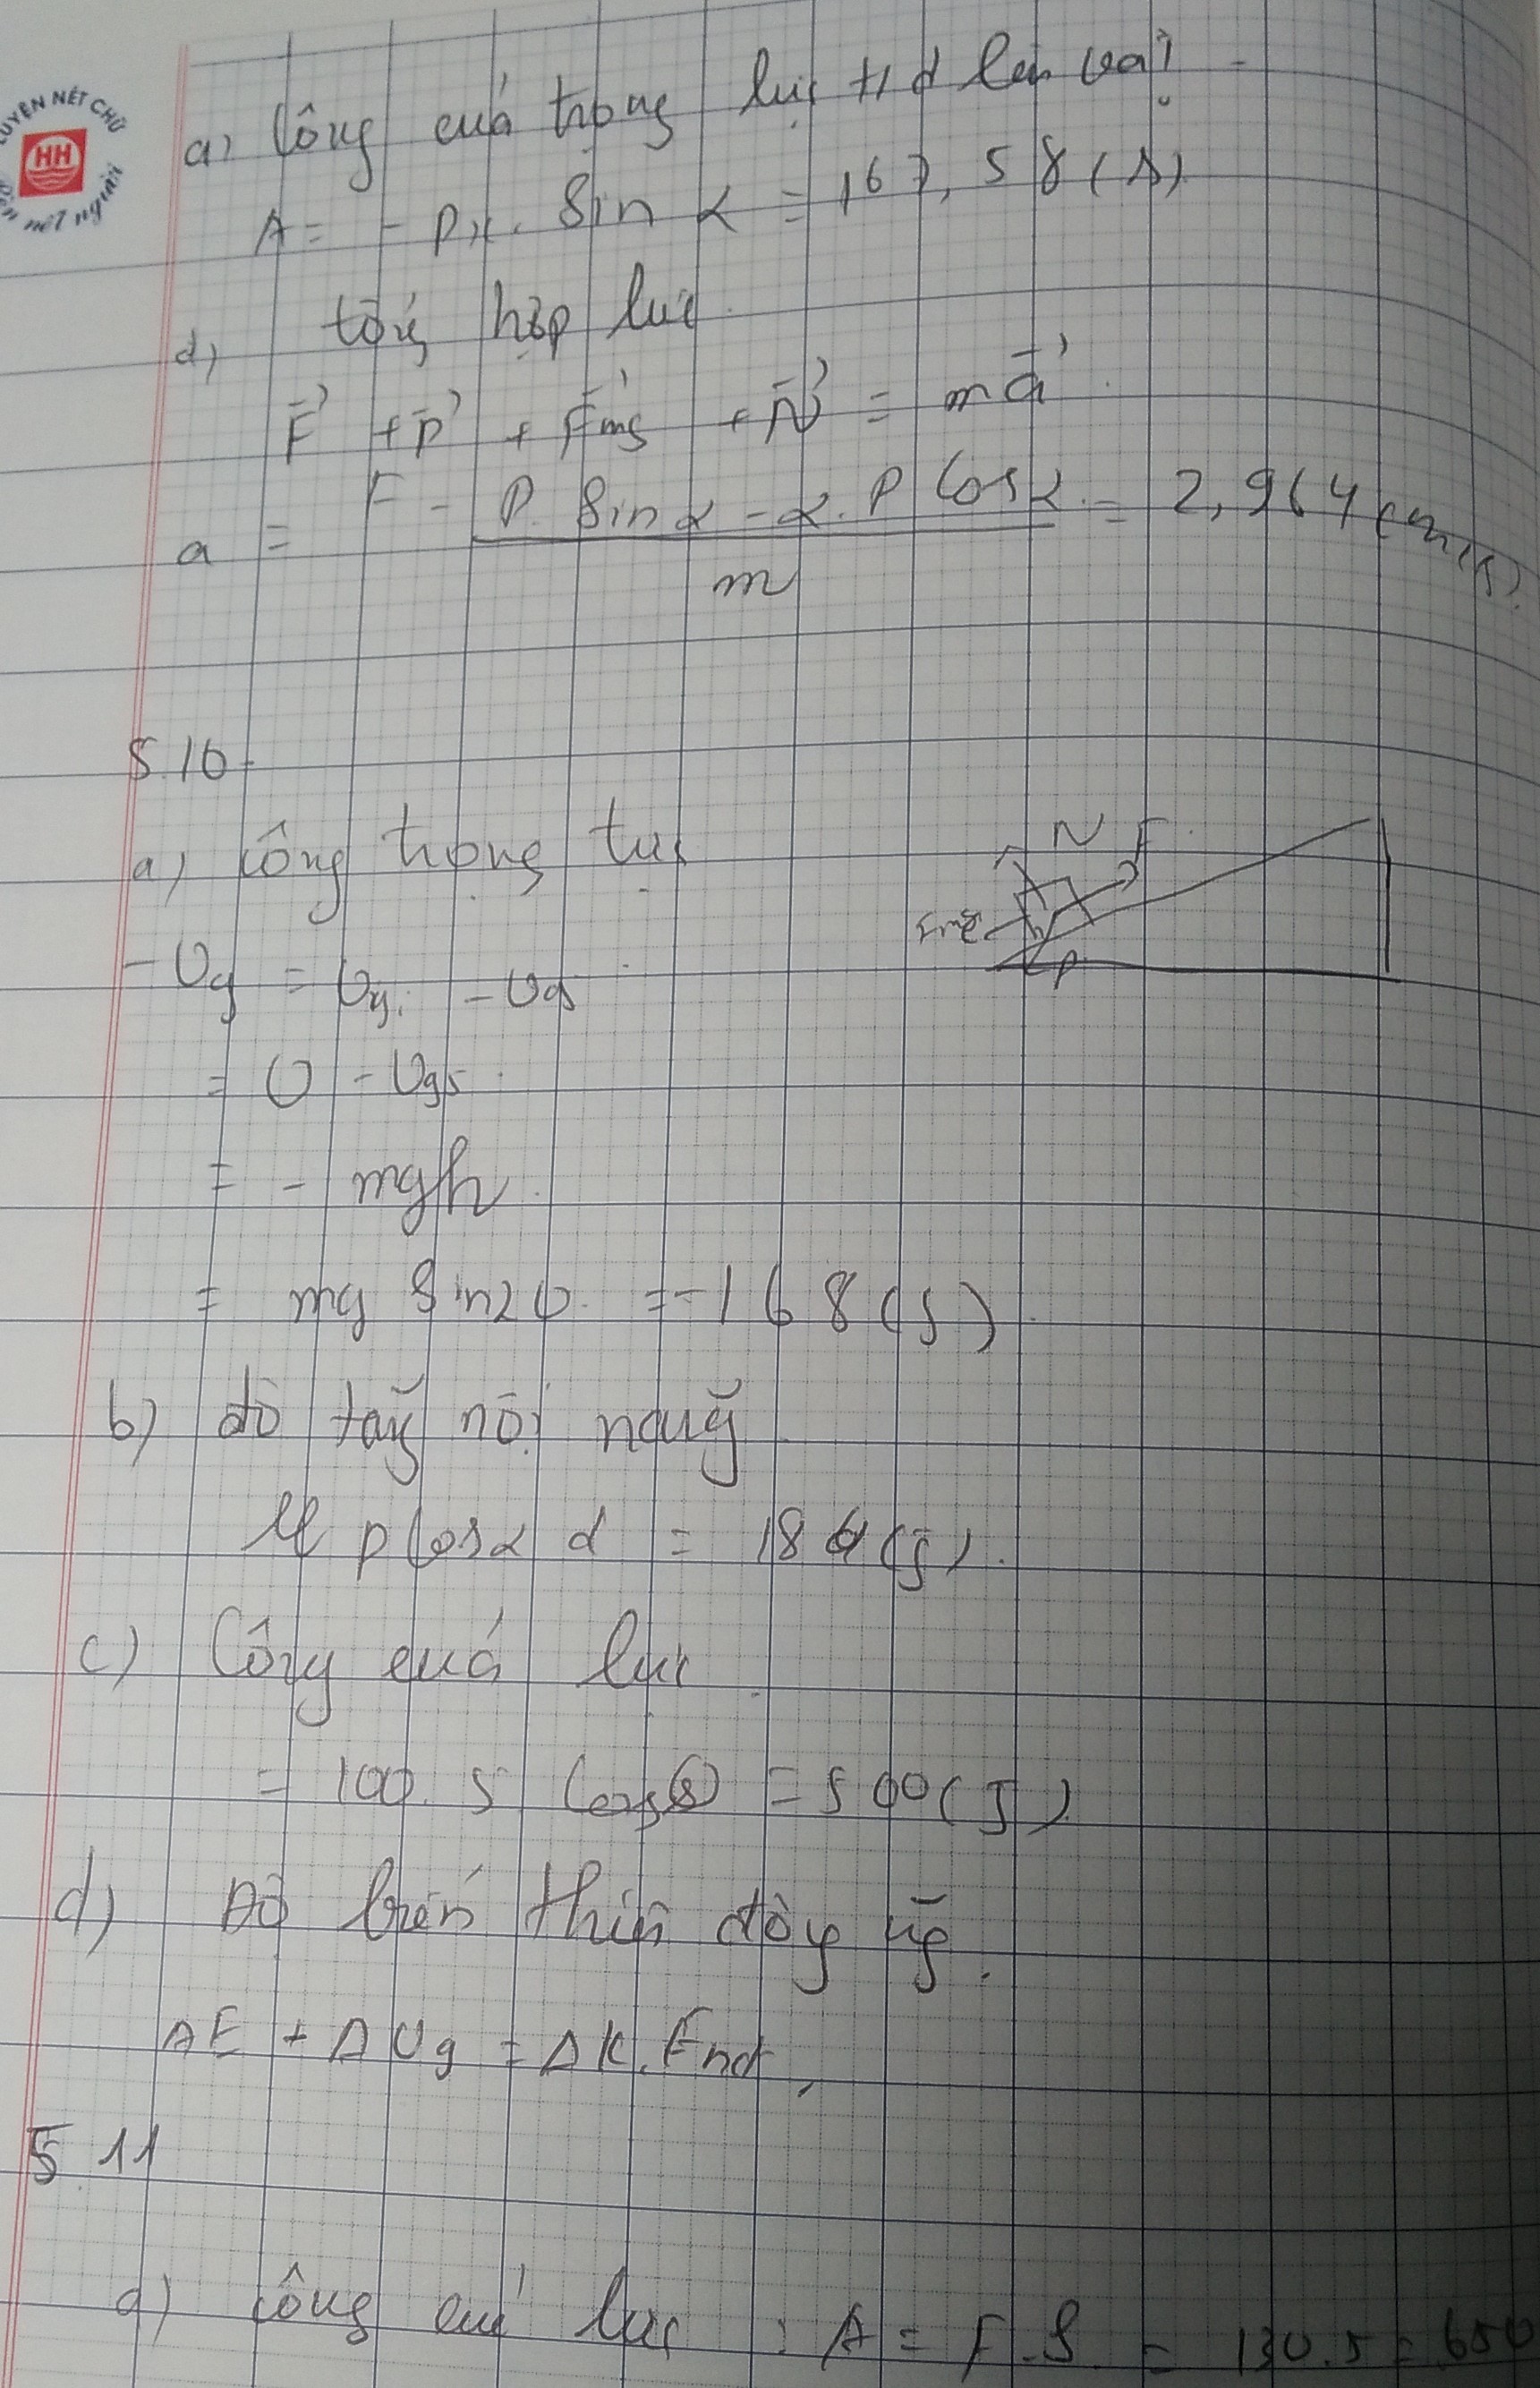 LUYỆN NÉT CHỮ
HH
nét người
a) Công cuả trọng lực t/d lên vật
A = - Px. Sin α = 167,58 (J)
d) tổng hợp lực
F + P + Fms + N = ma
a = F - P. Sin α - α. P Cos α = 2,964 (m/s)
m
5.10
a) công trọng lực
N F
Fms
P
- Ug = Ug. - Ug5
= 0 - Ug5
= - mgh
= mg Sin20 = -168 (J)
b) độ tăng nội năng
μ P Cosα d = 184 (J).
c) Công cuả lực
= 100. 5 Cos = 500 (J)
d) Độ biến thiên động
ΔE + ΔUg = ΔK.
5.11
a) công cuả lực : A = F.S = 130.5 = 650